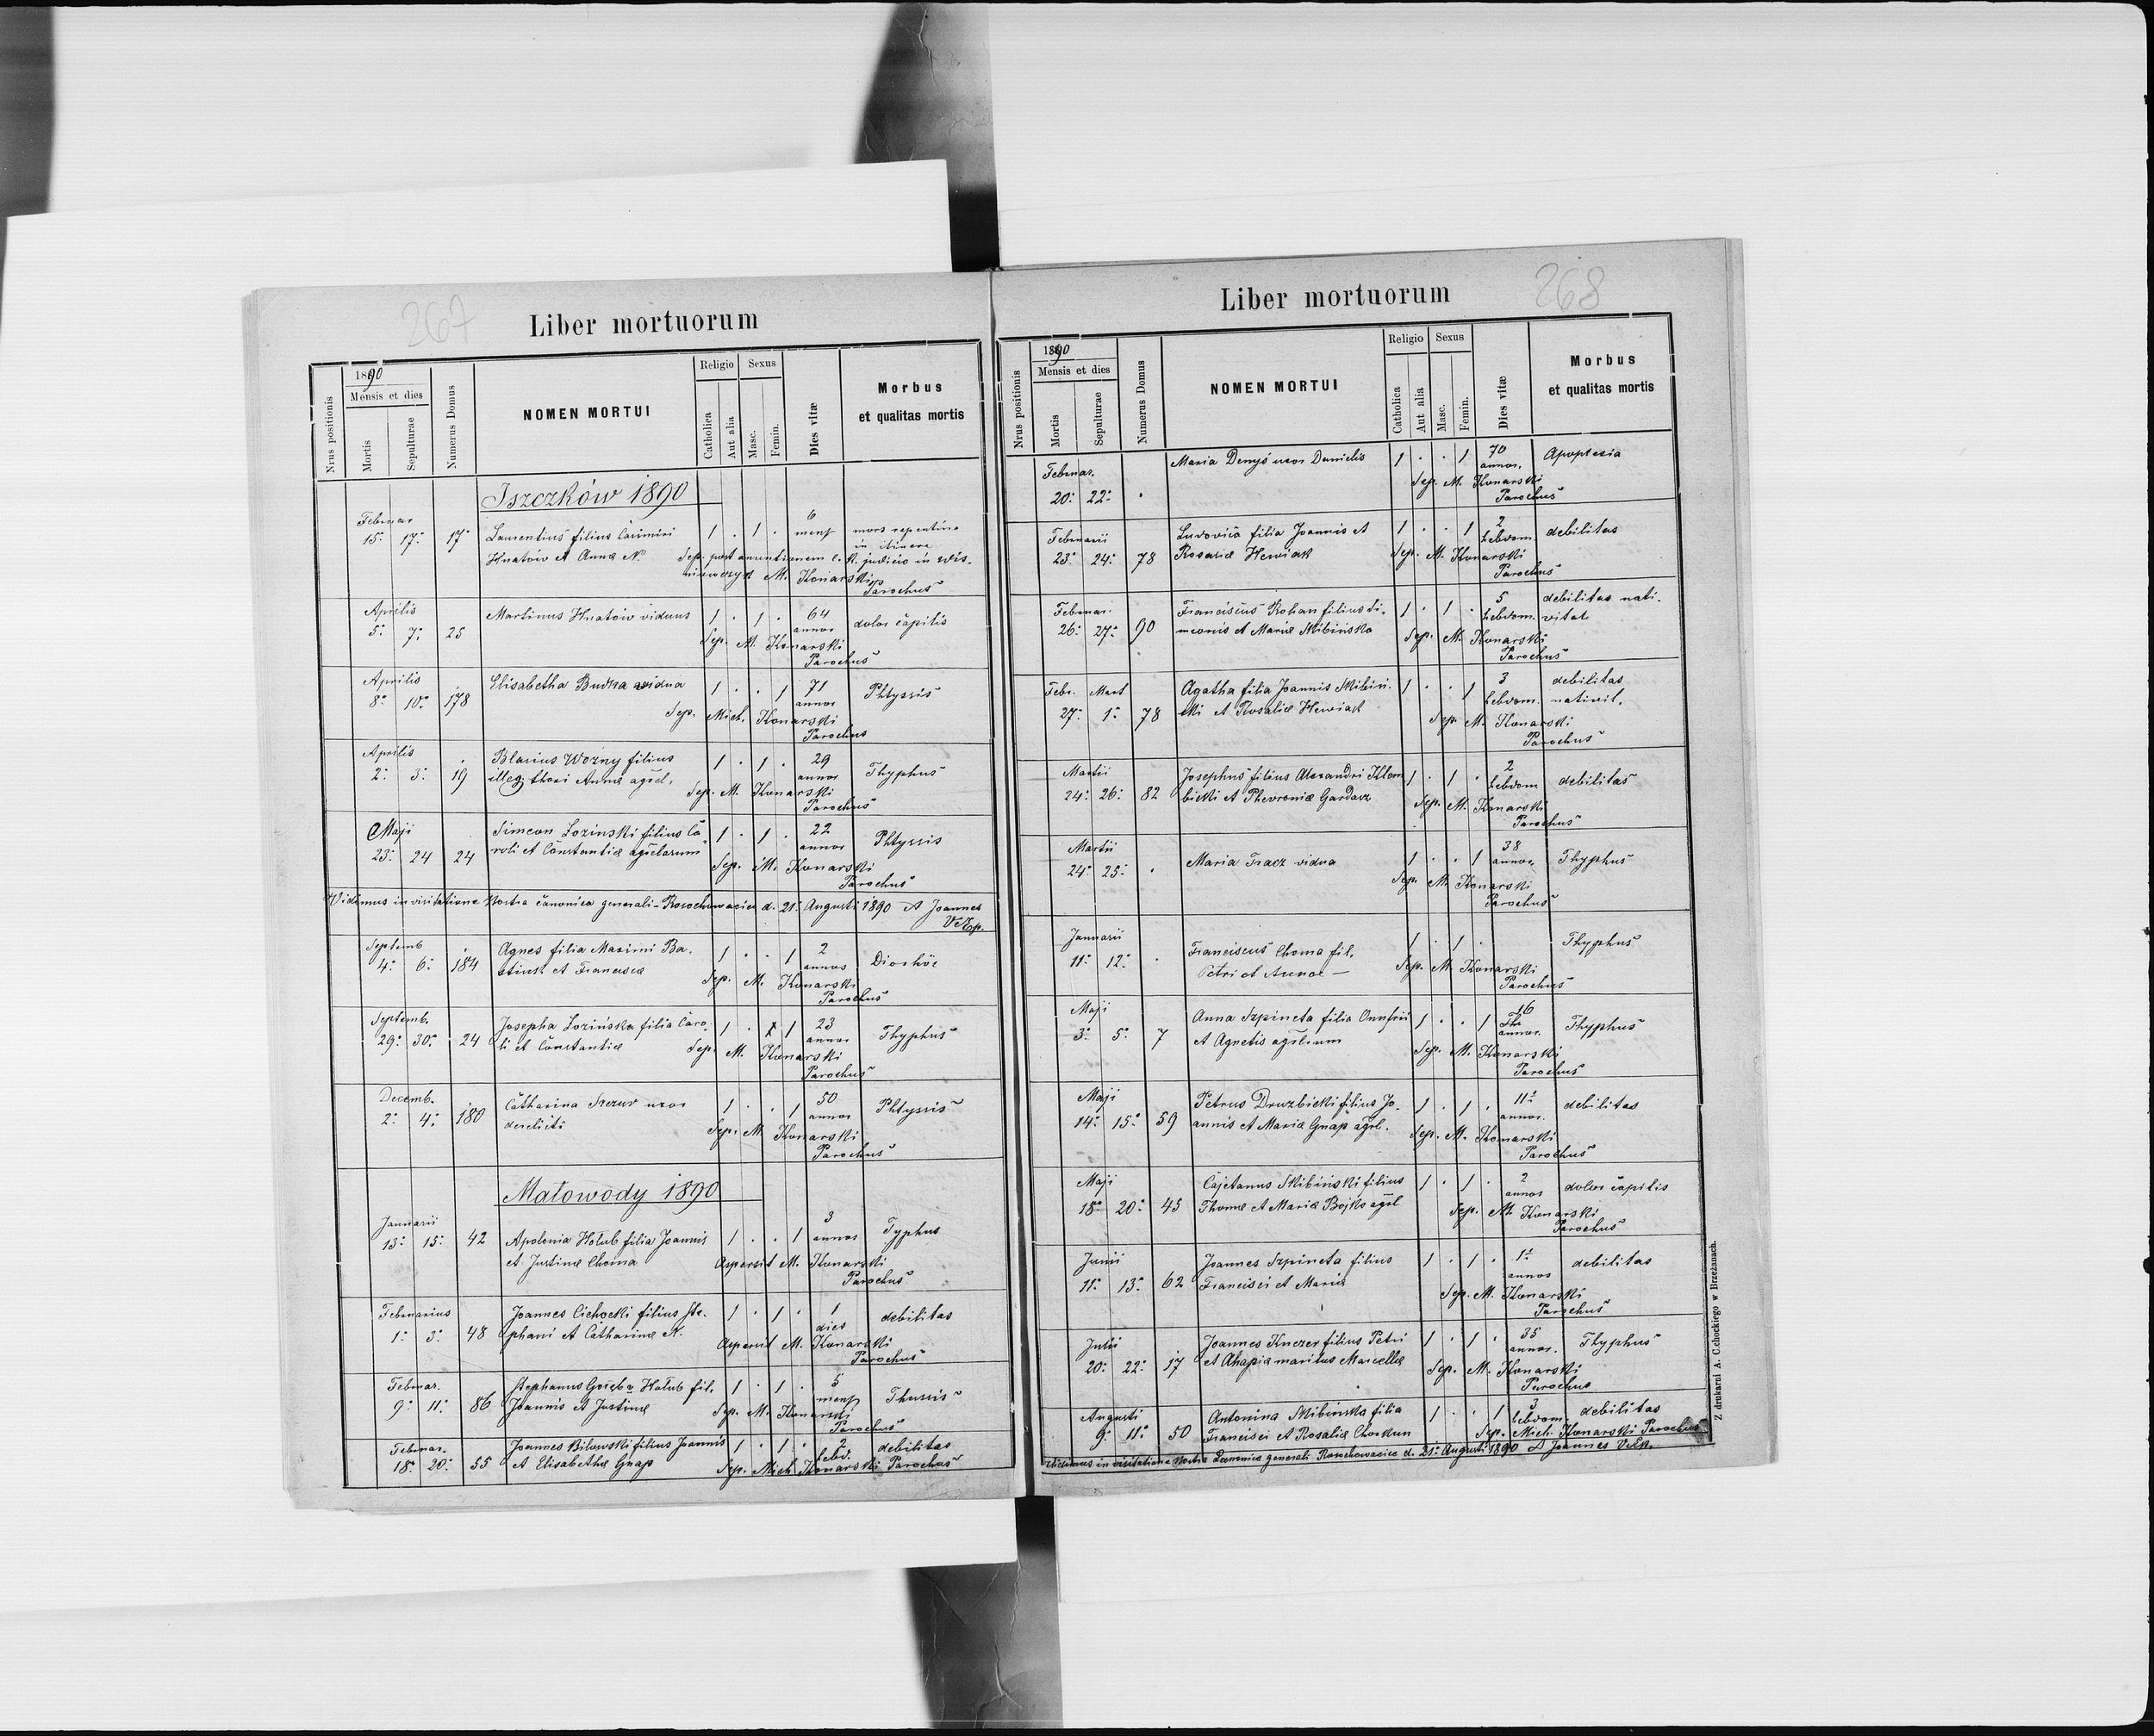 267
Liber mortuorum
Nrus positionis
1890
Mensis et dies
Mortis
Sepulturae
Numerus Domus
NOMEN MORTUI
Religio
Catholica
Aut alia
Sexus
Masc.
Femin.
Dies vitæ
Morbus
et qualitas mortis
Iszczków 1890
Februar 6
15: 17: 17 Laurentius filius Casimiri 1 . 1 . mens mors repentina
in itinere
Hnatów et Anna N. Sep. post anuntionem c. k. judicio in Wis.
niowczyk M. Konarski
Parochus
Aprilis 64
5: 7: 25 Martinus Hnatów viduus 1 . 1 . annor dolor capitis
Sep. M. Konarski
Parochus
Aprilis 71
8: 10: 178 Elisabetha Budka vidua 1 . . 1 annor Phtyssis
Sep. Mich. Konarski
Parochus
Aprilis 29
2: 3: 19 Blasius Wozny filius 1 . 1 . annor Thyphus
illeg. thori Annæ agricl. Sep. M. Konarski
Parochus
Maji 22
23: 24 24 Simeon Lozinski filius Ca 1 . 1 . annor Phtyssis
roli et Constantiæ agricolarum Sep. M. Konarski
Parochus
Vidimus in visitatione Nostra canonica generali Rosochowaciec d. 21. Augusti 1890 A Joannes
Septemb 2
4: 6: 184 Agnes filia Maximi Ba. 1 . . 1 annor
et Franciscæ Sep. M. Konarski
Parochus
Septemb. 23
29: 30: 24 Josepha Lozińska filia Caro. 1 . 1 annor Thyphus
li et Constantiæ Sep. M. Konarski
Parochus
Decemb. 50
2: 4: 180 Catharina uxor 1 . . 1 annor Phtyssis
derelicti Sep. M. Konarski
Parochus
Małowody 1890
Januarii 3
13: 15: 42 Apolonia Hołub filia Joannis 1 . . 1 annor Typhus
et Justinæ Choma Aspersit M. Konarski
Parochus
Februarius 1
1: 3: 48 Joannes Cichocki filius Ste. 1 . 1 . dies debilitas
phani et Catharinæ N. Aspersit M. Konarski
Parochus
Februar. 5
9: 11: 86 Stephanus Hołub fil. 1 . 1 . mens Thussis
Joannis et Justinæ Sep. M. Konarski
Parochus
Februar. 2
18: 20: 55 Joannes Bilowski filius Joannis 1 . 1 . hebd. debilitas
et Elisabethæ Gnap Sep. Mich. Konarski Parochus
268
Liber mortuorum
Nrus positionis
1890
Mensis et dies
Mortis
Sepulturae
Numerus Domus
NOMEN MORTUI
Religio
Catholica
Aut alia
Sexus
Masc.
Femin.
Dies vitæ
Morbus
et qualitas mortis
Februar. 70
20: 22: . Maria Denyś uxor Danielis 1 . . 1 annor. Apoplexia
Sep. M. Konarski
Parochus
Februarii 2
23: 24: 78 Ludovica filia Joannis et 1 . . 1 hebdom debilitas
Rosariæ Hewiak Sep. M. Konarski
Parochus
Februar. 5
26: 27: 90 Franciscus Kohan filius Si. 1 . 1 . hebdom. debilitas nati.
vitat.
meonis et Mariæ Skibińska Sep. M. Konarski
Parochus
Febr. Mart 3
27: 1: 78 Agatha filia Joannis Skibiń. 1 . . 1 hebdom. debilitas
nativit.
ski et Rosaliæ Hewiak Sep. M. Konarski
Parochus
Martii 2
24: 26: 82 Josephus filius Alexandri Klem 1 . 1 . hebdom debilitas
bicki et Phevroniæ Gardasz Sep. M. Konarski
Parochus
Martii 38
24: 25: . Maria Tracz vidua 1 . . 1 annor. Thyphus
Sep. M. Konarski
Parochus
Januarii
11: 12: . Franciscus Choma fil. 1 . 1 . Thyphus
Petri et Annæ — Sep. M. Konarski
Parochus
Maji 16
3: 5: 7 Anna Szpineta filia Onufrii 1 . . 1 annor. Thyphus
et Agnetis Sep. M. Konarski
Parochus
Maji 11:
14: 15: 59 Petrus Druzbicki filius Jo. 1 . 1 . annor. debilitas
annis et Mariæ Gnap agrl. Sep. M. Konarski
Parochus
Maji 2
18: 20: 45 Cajetanus Skibiński filius 1 . 1 . annor dolor capitis
Thomæ et Mariæ Bojko agrl Sep. M. Konarski
Parochus
Junii 1:
11: 13: 62 Joannes Szpineta filius 1 . 1 . annor debilitas
Francisci et Mariæ Sep. M. Konarski
Parochus
Julii 35
20: 22: 17 Joannes Knezer filius Petri 1 . 1 . annor. Thyphus
et Ahapiæ maritus Marcellæ Sep. M. Konarski
Parochus
Augusti 3
9: 11: 50 Antonina Skibińska filia 1 . . 1 hebdom. debilitas
Francisci et Rosaliæ Chorkun Sep. Mich. Konarski Parochus
Vidimus in visitatione Nostra Canonica generali Rosochowaciec d. 21: Augusti 1890 A Joannes
Z drukarni A. Cichockiego w Brzeżanach.